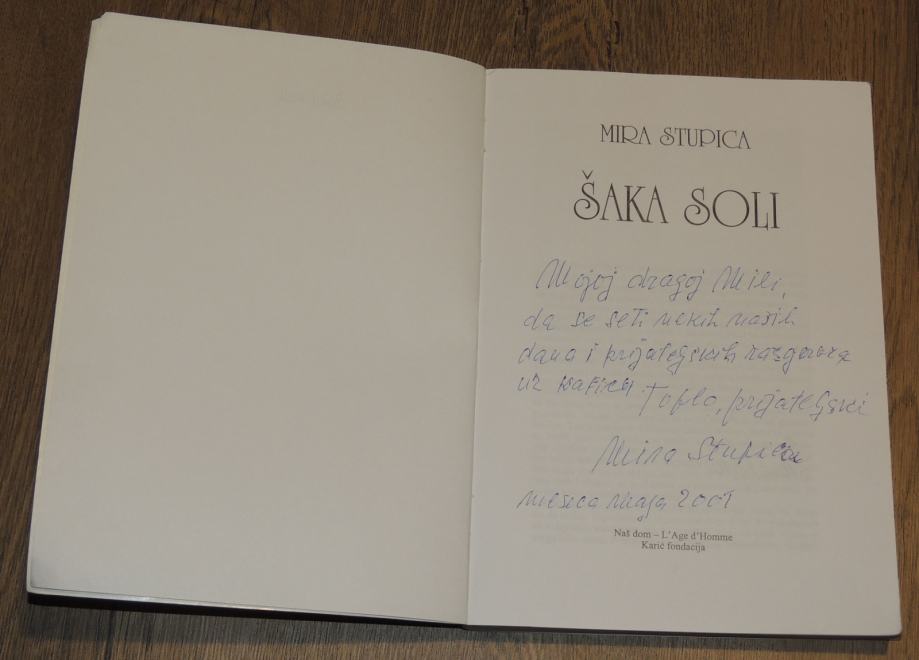 MIRA STUPICA
ŠAKA SOLI
Mojoj dragoj Mili,
da se seti nekih naših
dana i prijateljskih razgovora
uz kaficu Toplo, prijateljski
Mira Stupica
meseca maja 2001
Naš dom – L'Age d'Homme
Karić fondacija